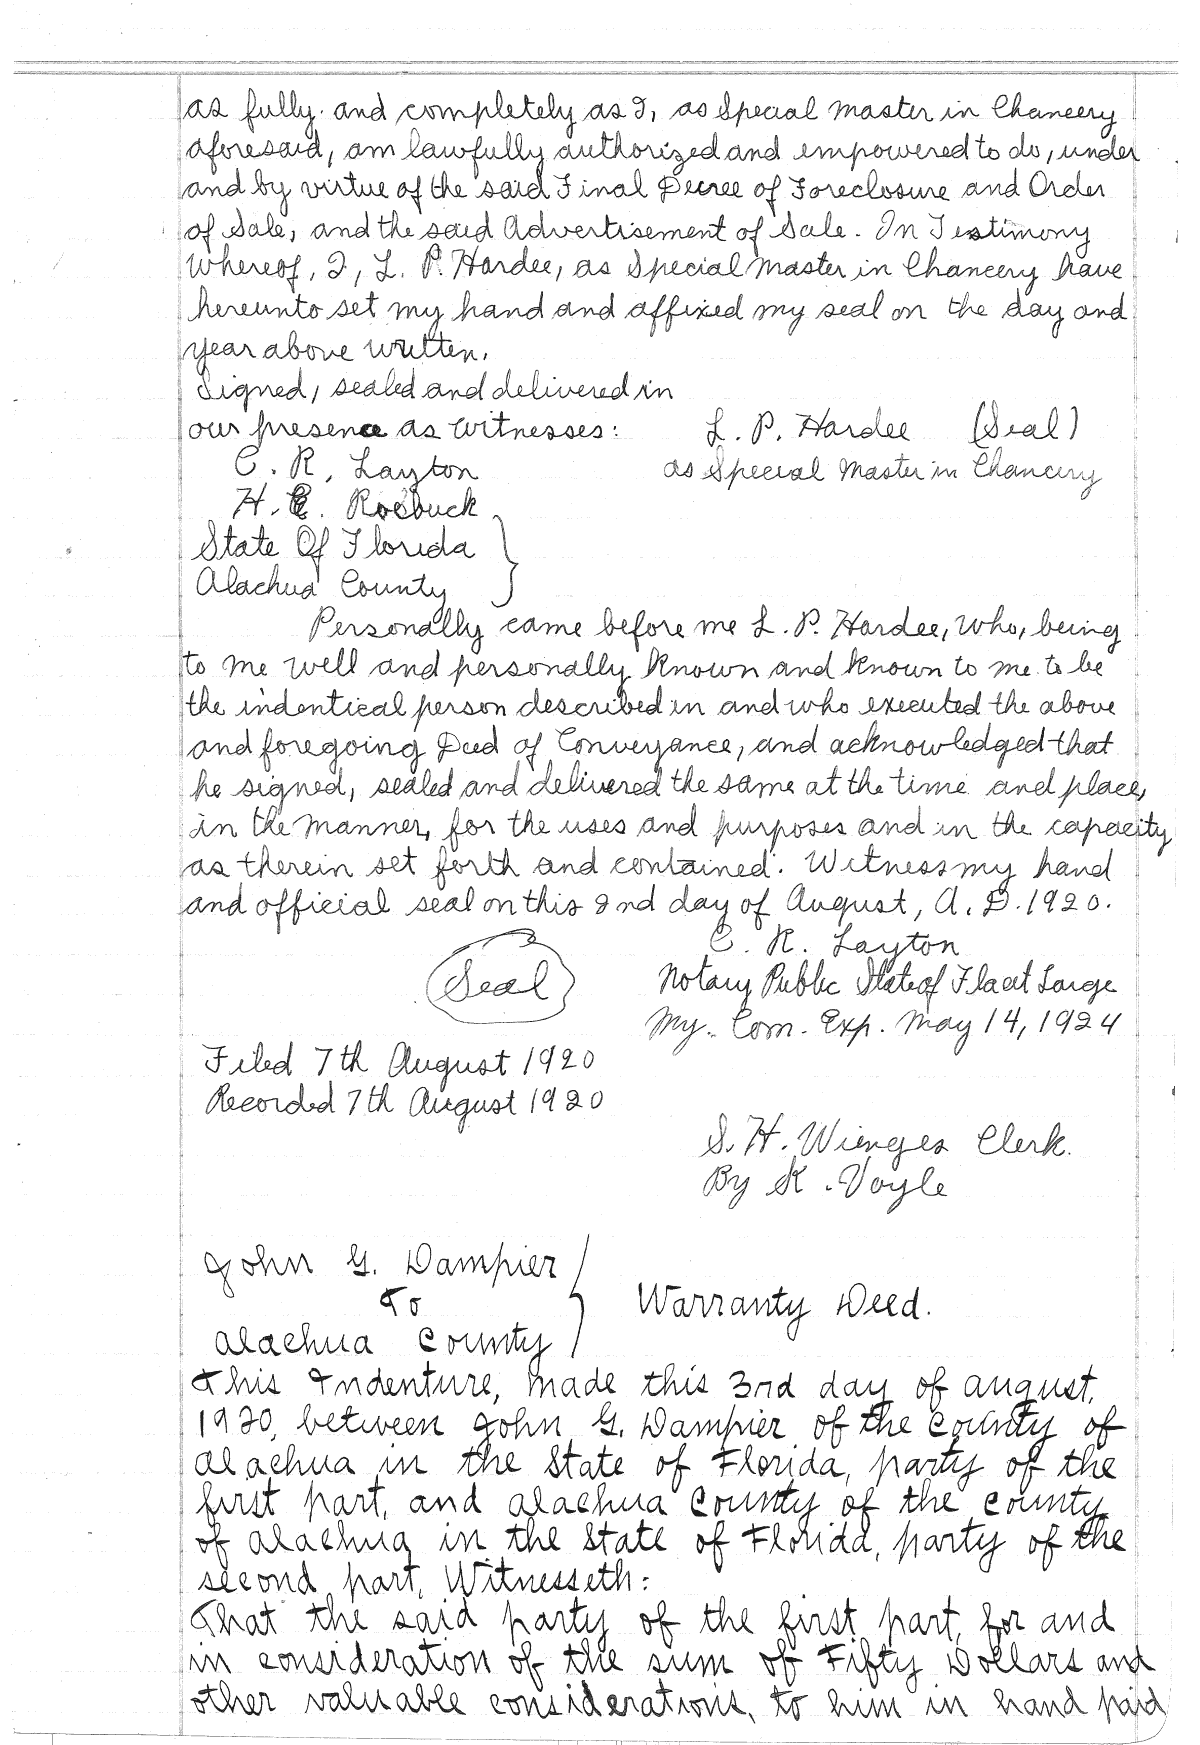 as fully and completely as I, as Special Master in Chancery
aforesaid, am lawfully authorized and empowered to do, under
and by virtue of the said Final Decree of Foreclosure and Order
of Sale, and the said Advertisement of Sale. In Testimony
Whereof, I, L. P. Hardee, as Special Master in Chancery have
hereunto set my hand and affixed my seal on the day and
year above written.
Signed, sealed and delivered in
our presence as witnesses:
L. P. Hardee (Seal)
C. R. Layton
as Special Master in Chancery
H. E. Roebuck
State Of Florida
Alachua County
Personally came before me L. P. Hardee, who, being
to me well and personally known and known to me to be
the indentical person described in and who executed the above
and foregoing Deed of Conveyance, and acknowledged that
he signed, sealed and delivered the same at the time and place,
in the manner, for the uses and purposes and in the capacity
as therein set forth and contained. Witness my hand
and official seal on this 2nd day of August, A. D. 1920.
C. R. Layton
Seal
Notary Public State of Fla at Large
My. Com. Exp. May 14, 1924
Filed 7th August 1920
Recorded 7th August 1920
S. H. Wienges Clerk.
By K. Voyle
John G. Dampier
To
Alachua County
Warranty Deed.
This Indenture, Made this 3rd day of august,
1920, between John G. Dampier of the County of
Alachua in the State of Florida, party of the
first part, and Alachua County of the county
of Alachua in the State of Florida, party of the
second part, Witnesseth:
That the said party of the first part, for and
in consideration of the sum of Fifty Dollars and
other valuable considerations, to him in hand paid